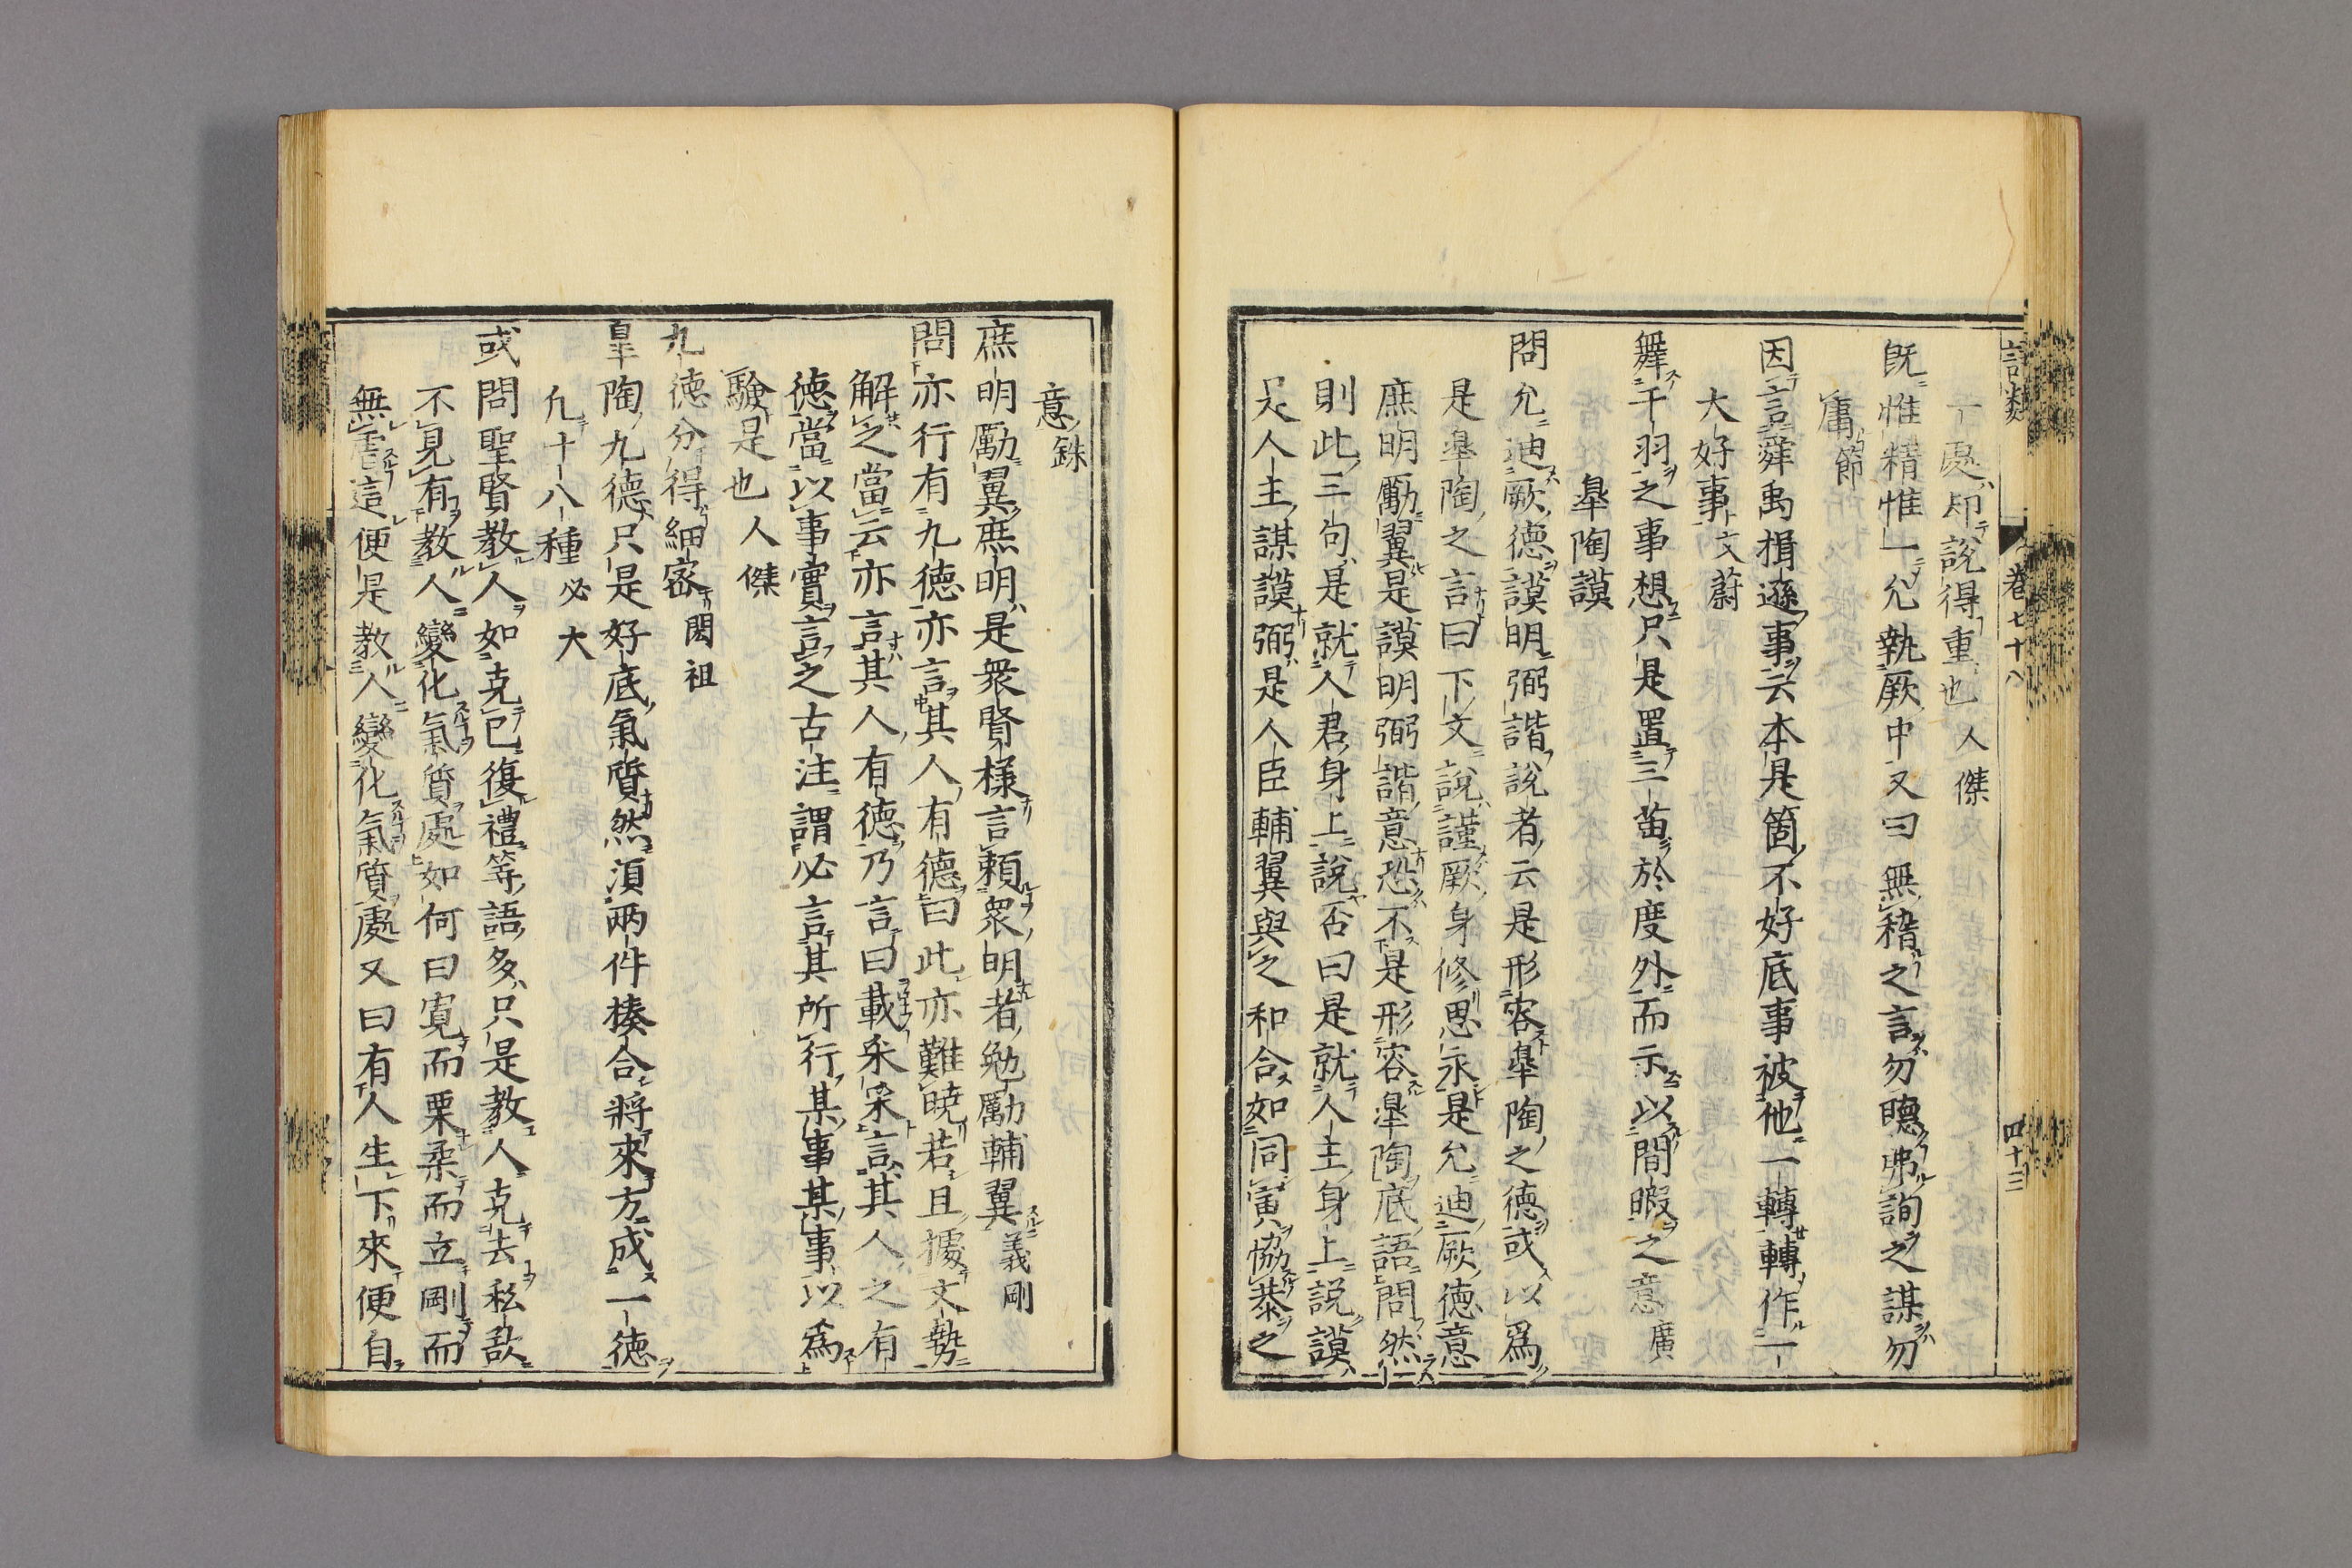 語類
卷七十八
四十三
一處却說得重也人傑
既惟精惟一允執厥中又曰無稽之言勿聽弗詢之謀勿
庸節
因言舜禹揖遜事云本是箇不好底事被他一轉轉作一
大好事文蔚
舞干羽之事想只是置三苗於度外而示以間暇之意廣
皐陶謨
問允迪厥德謨明弼諧說者云是形容皐陶之德或以爲
是皐陶之言曰下文說謹厥身修思永是允迪厥德意
庶明勵翼是謨明弼諧意恐不是形容皐陶底語問然
則此三句是就人君身上說否曰是就人主身上說謨
是人主謀謨弼是人臣輔翼與之和合如同寅協恭之
意銖
庶明勵翼庶明是衆賢樣言賴衆明者勉勵輔翼義剛
問亦行有九德亦言其人有德曰此亦難曉若且據文勢
解之當云亦言其人有德乃言曰載采采言其人之有
德當以事實言之古注謂必言其所行某事某事以爲
驗是也人傑
九德分得細密閎祖
皐陶九德只是好底氣質然須兩件榛合將來方成一德
凢十八種必大
或問聖賢教人如克己復禮等語多只是教人克去私欲
不見有教人變化氣質處如何曰寬而栗柔而立剛而
無虐這便是教人變化氣質處又曰有人生下來便自